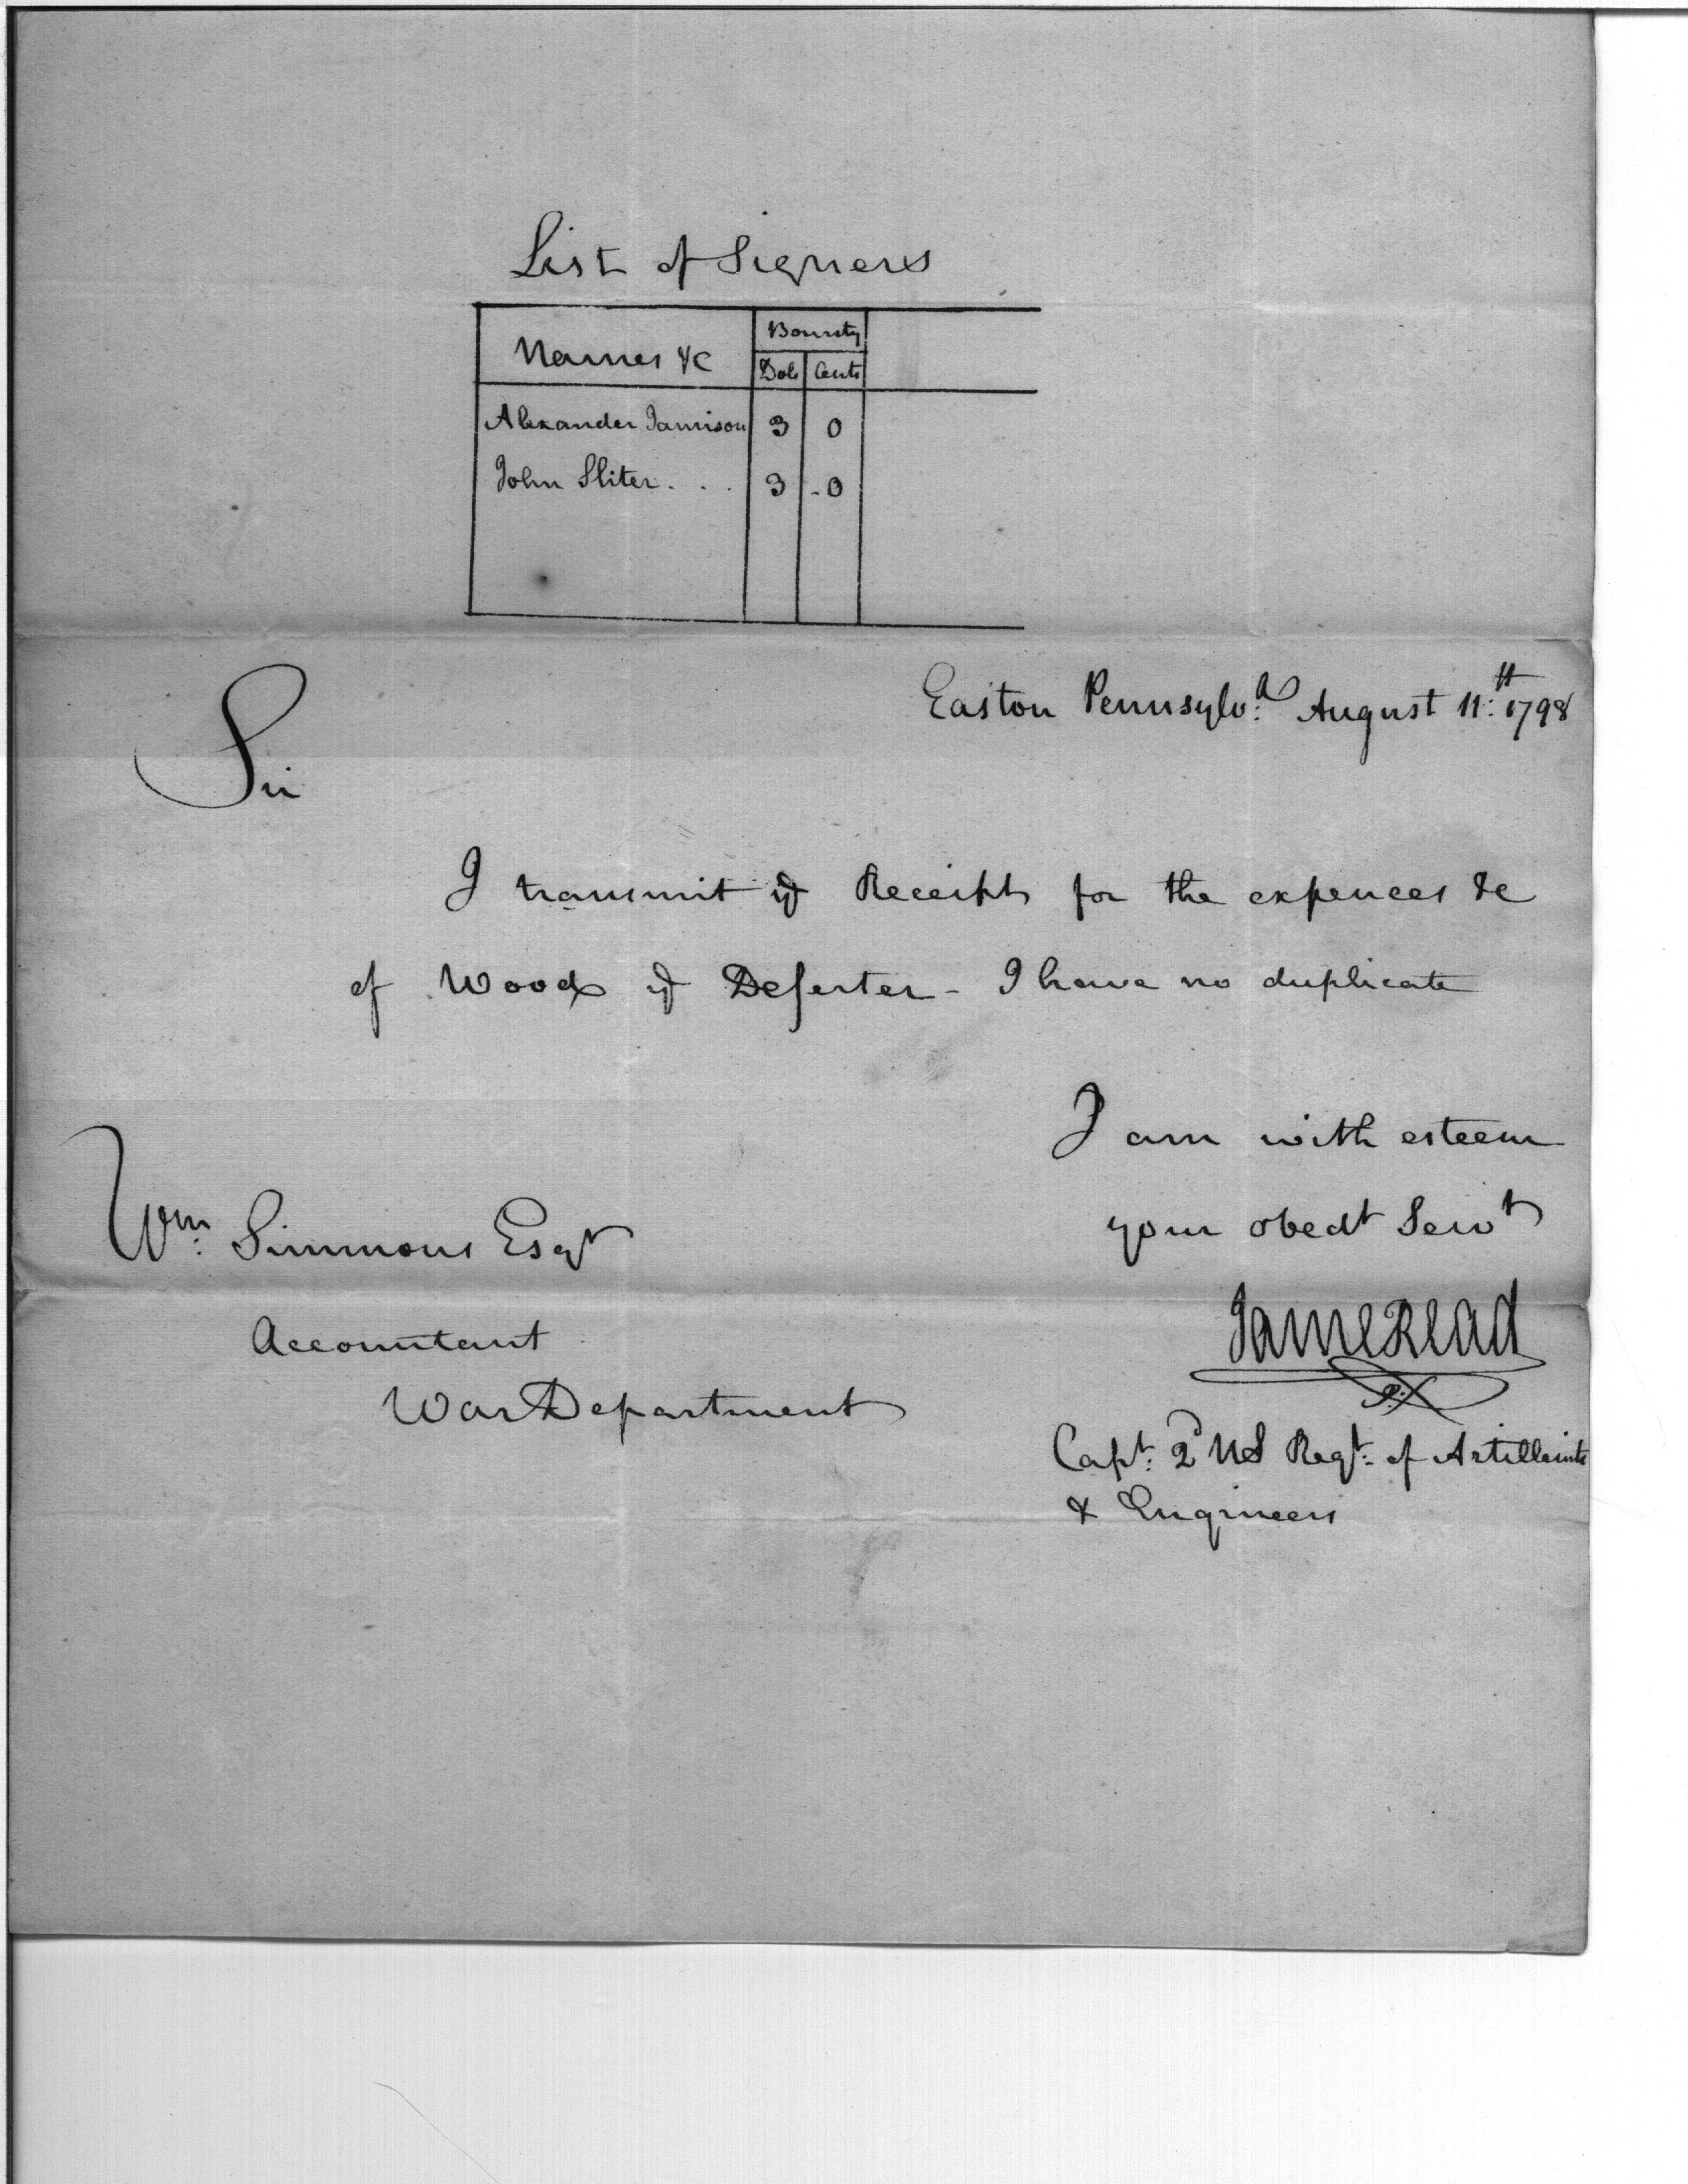 List of Signers
Names &c
Bounty
Dols Cents
Alexander Jamison 3 0
John Sliter . . . 3 - 0
Easton Pennsylva. August 11th: 1798
Sir
I transmit ye Receipts for the expences &c
of Wood ye Deserter - I have no duplicate
I am with esteem
your obedt Servt
Wm: Simmons Esqr
James Read
Accountant
War Department
Capt: 2d US Regt: of Artillerists
& Engineers